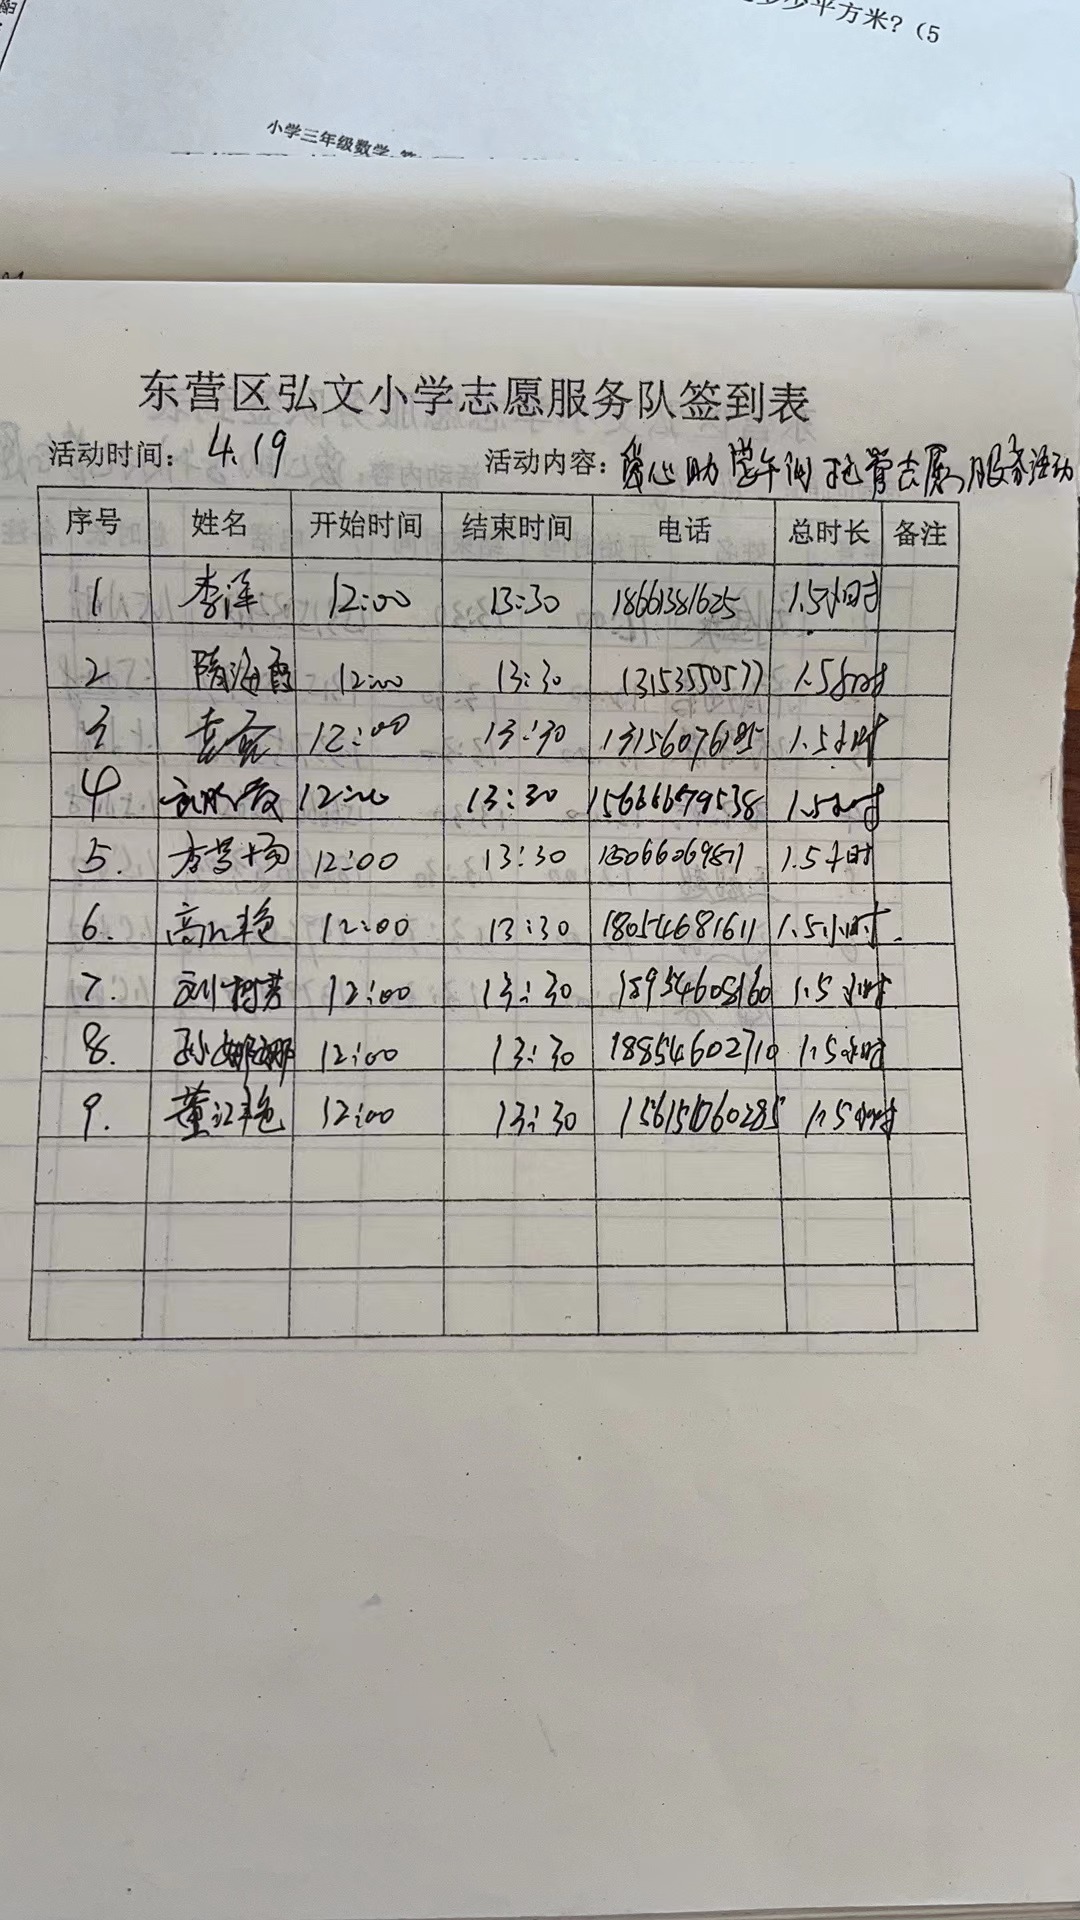 平方米？（5
小学三年级数学
东营区弘文小学志愿服务队签到表
活动时间：4.19 活动内容：爱心助学午间托管志愿服务活动
序号 姓名 开始时间 结束时间 电话 总时长 备注
1 李洋 12:00 13:30 18661381625 1.5小时
2 隋海霞 12:00 13:30 13153550577 1.5小时
3 12:00 13:30 1.5小时
4 12:00 13:30 15666679538 1.5小时
5. 12:00 13:30 1.5小时
6. 高红艳 12:00 13:30 18054681611 1.5小时.
7. 刘树芳 12:00 13:30 18954608160 1.5小时
8. 孙娜娜 12:00 13:30 18854602710 1.5小时
9. 董江艳 12:00 13:30 1.5小时